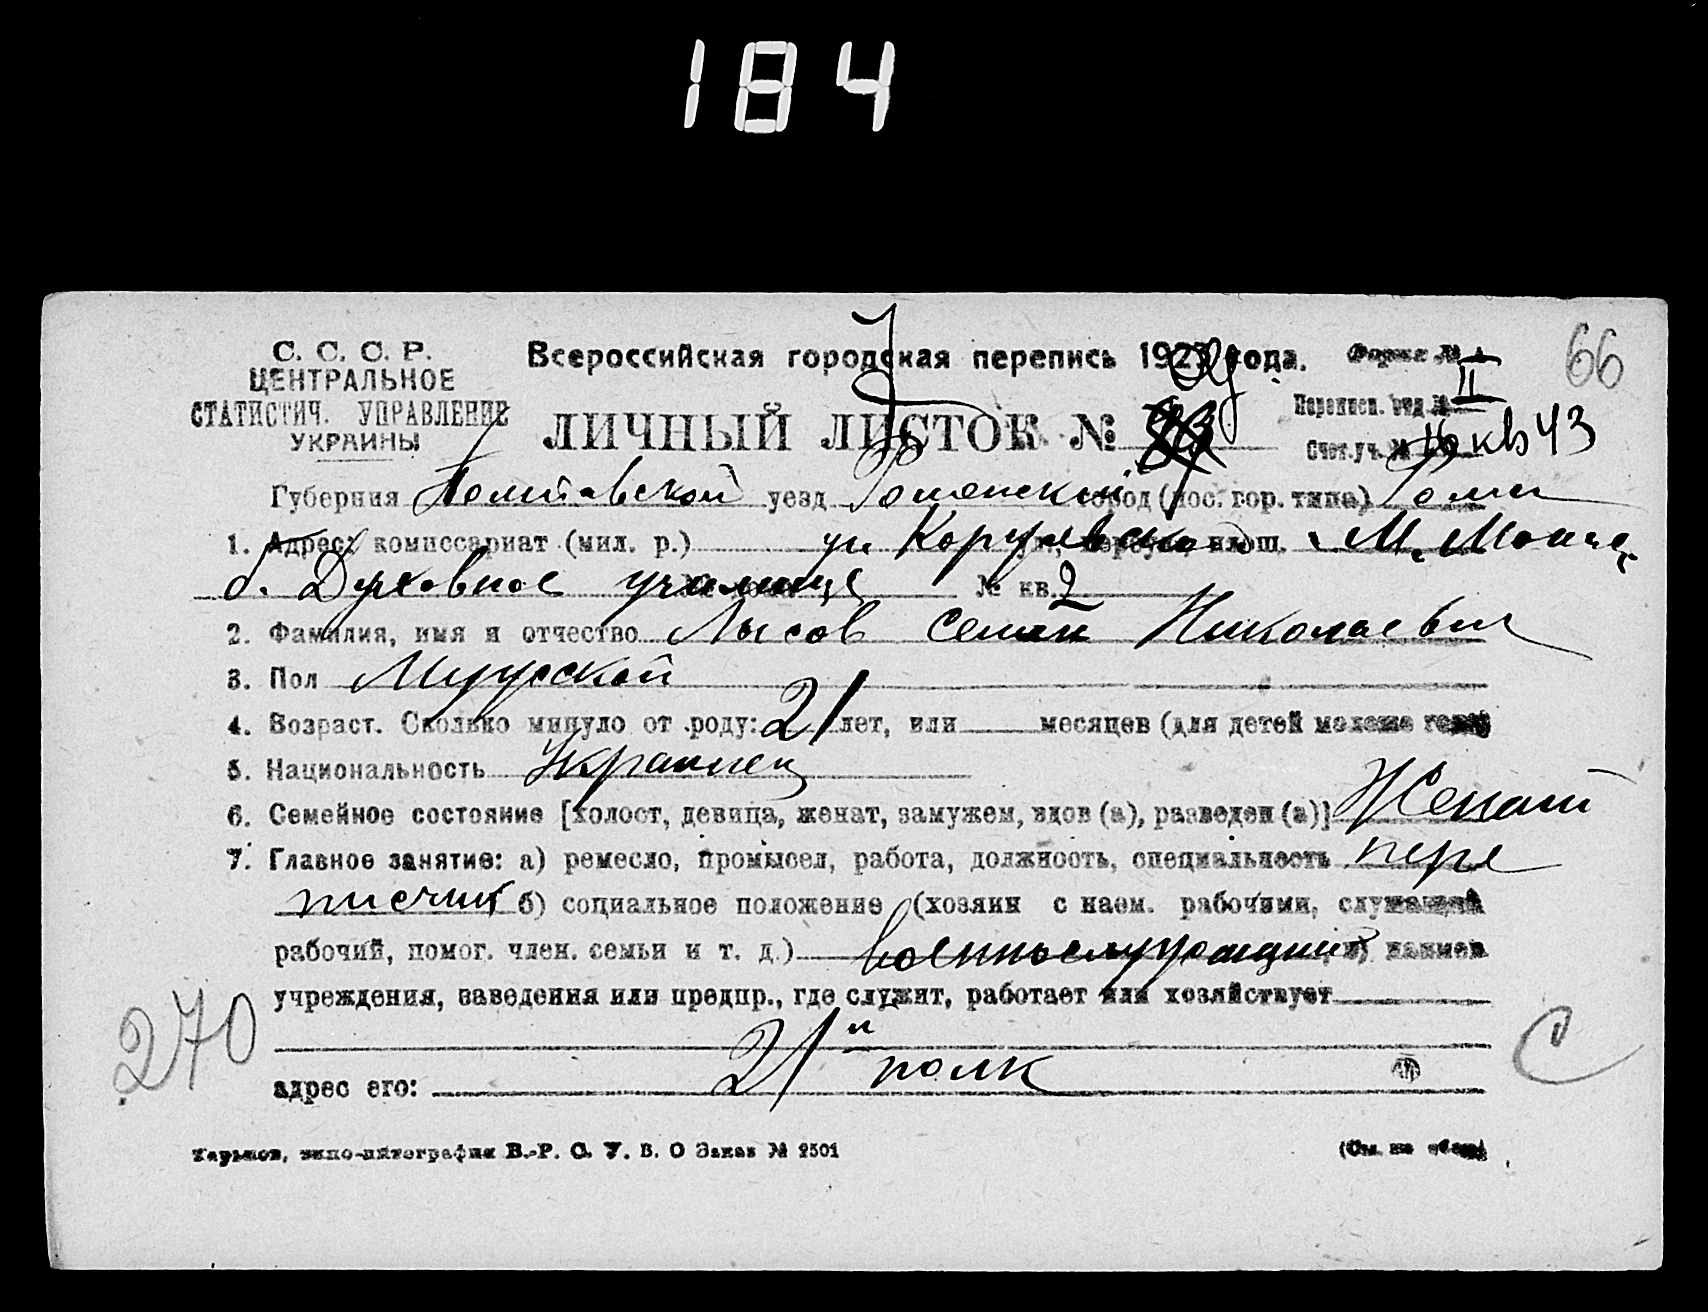 184
С. С. С. Р.
ЦЕНТРАЛЬНОЕ
СТАТИСТИЧ. УПРАВЛЕНИЕ
УКРАИНЫ
Всероссийская городская перепись 1923 года.
Форма № 1
66
ЛИЧНЫЙ ЛИСТОК №
Переписн. отд. № II
Счет. уч. № кв 43
Губерния Полтавской уезд Роменский город (пос. гор. типа) Ромен
1. Адрес: комиссариат (мил. р.) ул площ.
б. Духовное училище № кв. 2
2. Фамилия, имя и отчество Лысов Семен Николаевич
3. Пол Мужской
4. Возраст. Сколько минуло от роду: 21 лет, или месяцев (для детей моложе года)
5. Национальность Украинец
6. Семейное состояние [холост, девица, женат, замужем, вдов (а), разведен (а)] Женат
7. Главное занятие: а) ремесло, промысел, работа, должность, специальность пере
писчик б) социальное положение (хозяин с наем. рабочими, служащий
рабочий, помог. член. семьи и т. д.) военнослужащий в) наимен
учреждения, заведения или предпр., где служит, работает или хозяйствует
21й полк
адрес его:
270
С
Харьков, типо-литография В.-Р. С. У. В. О Заказ № 2501
(См. на обор.)